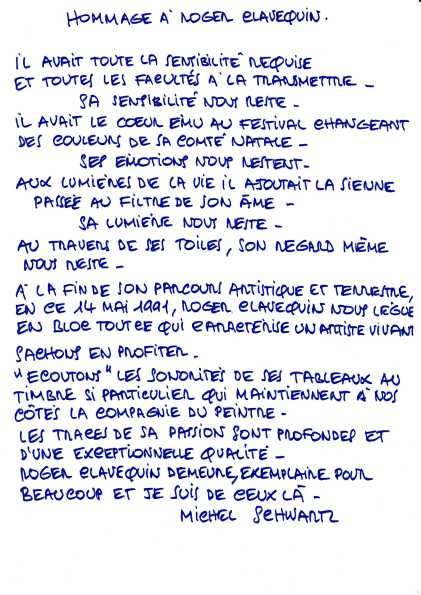 HOMMAGE À ROGER CLAVEQUIN.
IL AVAIT TOUTE LA SENSIBILITÉ REQUISE
ET TOUTES LES FACULTÉS À LA TRANSMETTRE _
SA SENSIBILITÉ NOUS RESTE _
IL AVAIT LE COEUR EMU AU FESTIVAL CHANGEANT
DES COULEURS DE SA COMTÉ NATALE _
SES EMOTIONS NOUS RESTENT_
AUX LUMIERES DE LA VIE IL AJOUTAIT LA SIENNE
PASSÉE AU FILTRE DE SON ÂME _
SA LUMIERE NOUS RESTE _
AU TRAVERS DE SES TOILES, SON REGARD MÊME
NOUS RESTE _
À LA FIN DE SON PARCOURS ARTISTIQUE ET TERRESTRE,
EN CE 14 MAI 1991, ROGER CLAVEQUIN NOUS LEGUE
EN BLOC TOUT CE QUI CARACTERISE UN ARTISTE VIVANT
SACHONS EN PROFITER _
"ECOUTONS" LES SONORITÉS DE SES TABLEAUX AU
TIMBRE SI PARTICULIER QUI MAINTIENNENT À NOS
CÔTÉS LA COMPAGNIE DU PEINTRE _
LES TRACES DE SA PASSION SONT PROFONDES ET
D'UNE EXCEPTIONNELLE QUALITÉ _
ROGER CLAVEQUIN DEMEURE, EXEMPLAIRE POUR
BEAUCOUP ET JE SUIS DE CEUX LÀ _
MICHEL SCHWARTZ